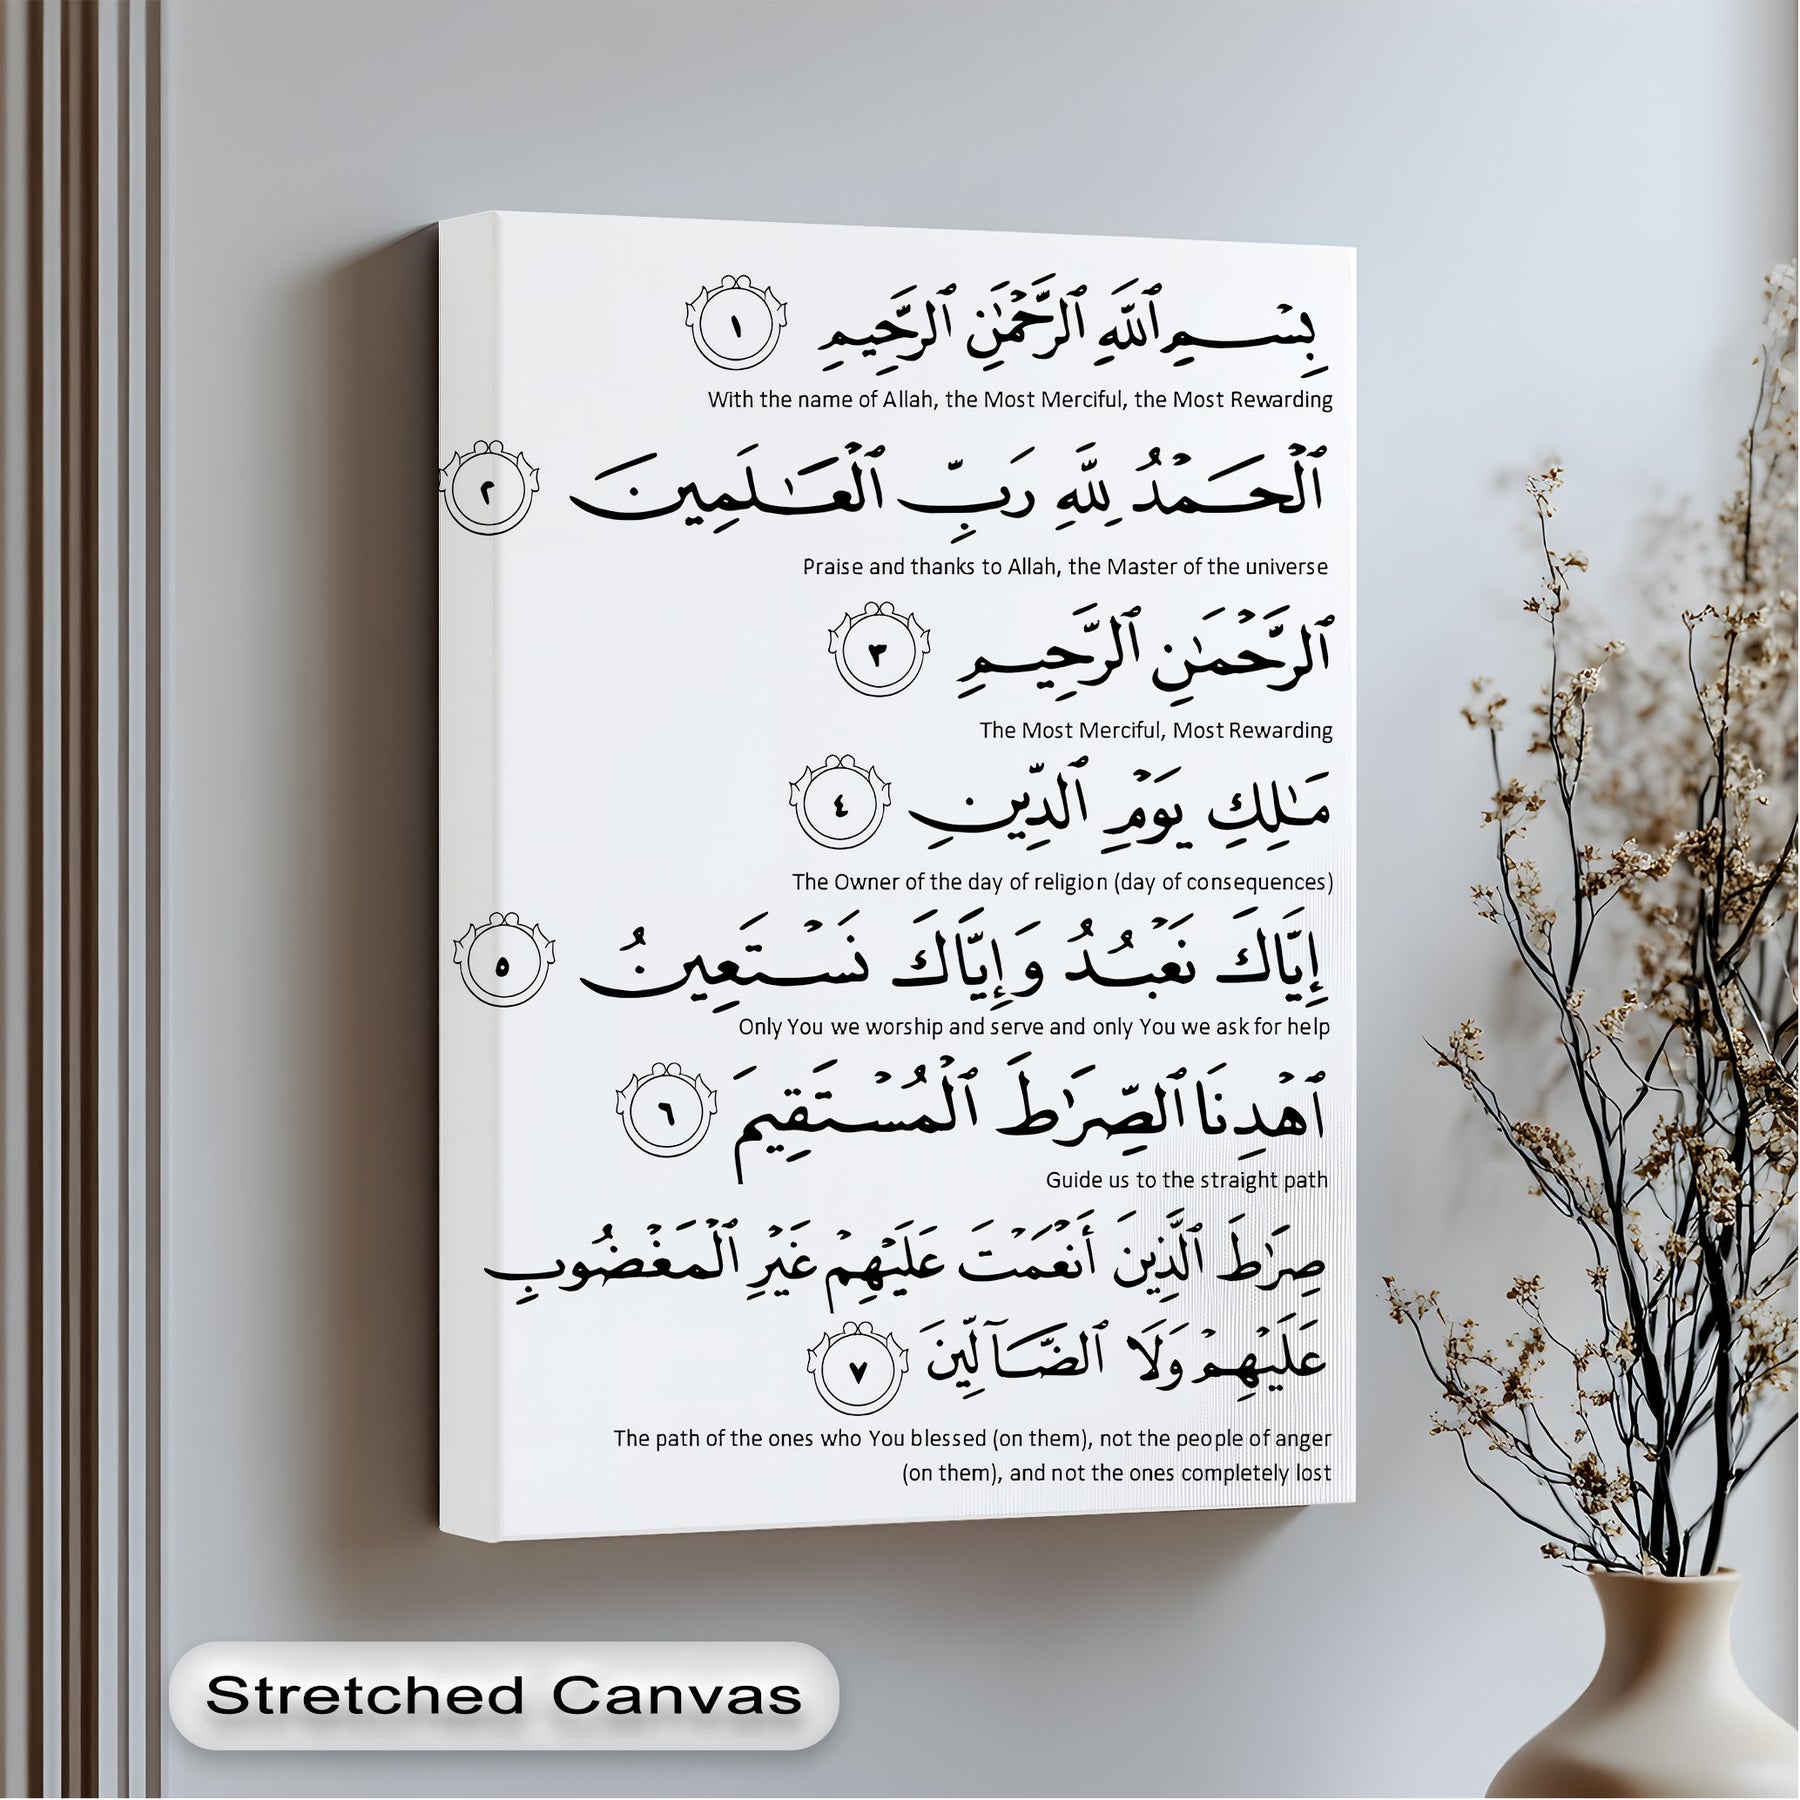 بِسۡمِ ٱللَّهِ ٱلرَّحۡمَٰنِ ٱلرَّحِيمِ ١
With the name of Allah, the Most Merciful, the Most Rewarding
ٱلۡحَمۡدُ لِلَّهِ رَبِّ ٱلۡعَٰلَمِينَ ٢
Praise and thanks to Allah, the Master of the universe
ٱلرَّحۡمَٰنِ ٱلرَّحِيمِ ٣
The Most Merciful, Most Rewarding
مَٰلِكِ يَوۡمِ ٱلدِّينِ ٤
The Owner of the day of religion (day of consequences)
إِيَّاكَ نَعۡبُدُ وَإِيَّاكَ نَسۡتَعِينُ ٥
Only You we worship and serve and only You we ask for help
ٱهۡدِنَا ٱلصِّرَٰطَ ٱلۡمُسۡتَقِيمَ ٦
Guide us to the straight path
صِرَٰطَ ٱلَّذِينَ أَنۡعَمۡتَ عَلَيۡهِمۡ غَيۡرِ ٱلۡمَغۡضُوبِ
عَلَيۡهِمۡ وَلَا ٱلضَّآلِّينَ ٧
The path of the ones who You blessed (on them), not the people of anger
(on them), and not the ones completely lost
Stretched Canvas